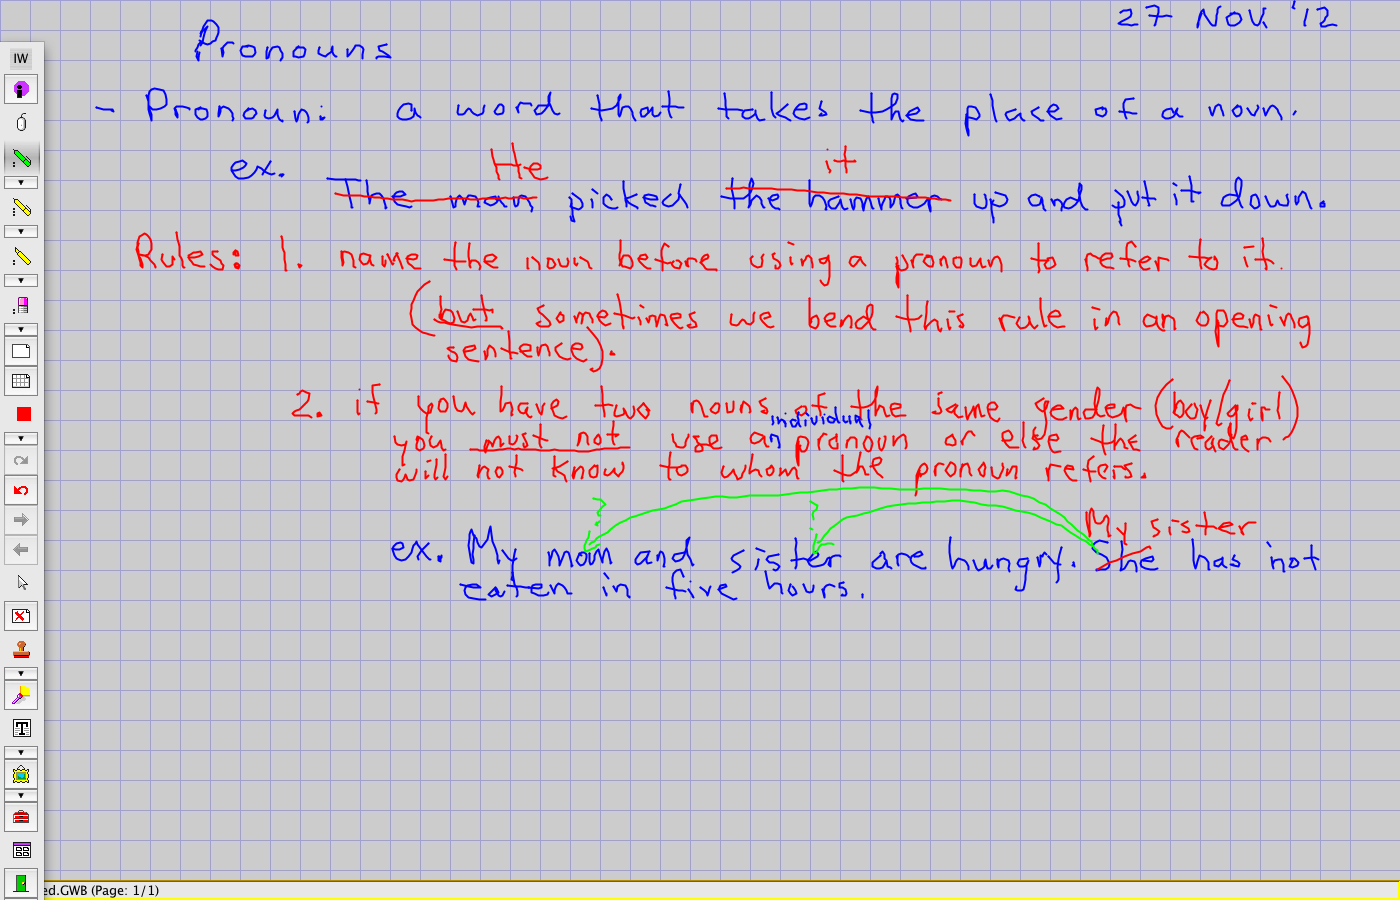 27 NOV. '12
Pronouns
- Pronoun: a word that takes the place of a noun.
He it
ex. The man picked the hammer up and put it down.
Rules: 1. name the noun before using a pronoun to refer to it.
(but sometimes we bend this rule in an opening
sentence).
2. if you have two nouns of the same gender (boy/girl)
individual
you must not use an pronoun or else the reader
will not know to whom the pronoun refers.
? ?
My sister
ex. My mom and sister are hungry. She has not
eaten in five hours.
IW
T
ed.GWB (Page: 1/1)